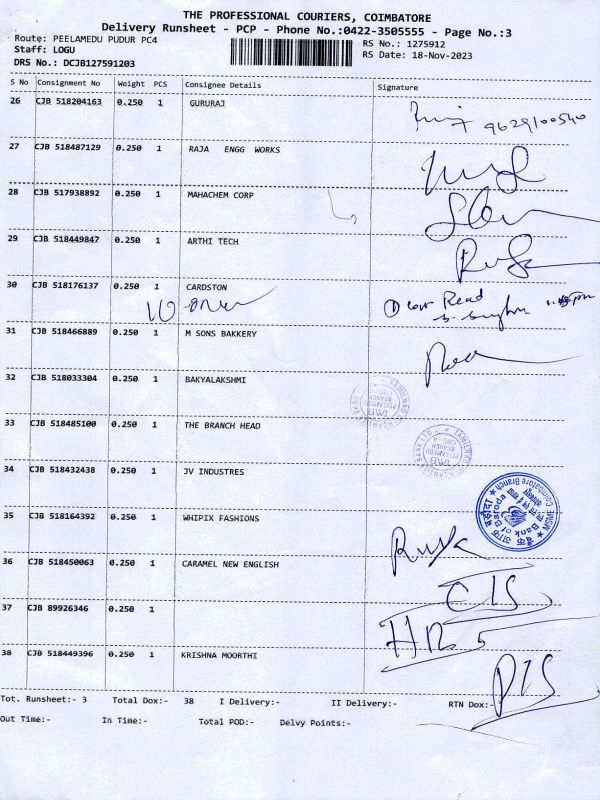 THE PROFESSIONAL COURIERS, COIMBATORE
Delivery Runsheet - PCP - Phone No.:0422-3505555 - Page No.:3
Route: PEELAMEDU PUDUR PC4
RS No.: 1275912
Staff: LOGU
RS Date: 18-Nov-2023
DRS No.: DCJB127591203
S No Consignment No Weight PCS Consignee Details Signature
26 CJB 518204163 0.250 1 GURURAJ 9629100540
27 CJB 518487129 0.250 1 RAJA ENGG WORKS
28 CJB 517938892 0.250 1 MAHACHEM CORP
29 CJB 518449847 0.250 1 ARTHI TECH
30 CJB 518176137 0.250 1 CARDSTON
31 CJB 518466889 0.250 1 M SONS BAKKERY
32 CJB 518033304 0.250 1 BAKYALAKSHMI
33 CJB 518485100 0.250 1 THE BRANCH HEAD
34 CJB 518432438 0.250 1 JV INDUSTRES
35 CJB 518164392 0.250 1 WHIPIX FASHIONS
36 CJB 518450063 0.250 1 CARAMEL NEW ENGLISH
37 CJB 89926346 0.250 1
38 CJB 518449396 0.250 1 KRISHNA MOORTHI
TMB
PEELAMEDU
BRANCH
TMB
PEELAMEDU
BRANCH
Bank of Baroda
MSME Coimbatore Branch
Tot. Runsheet:- 3 Total Dox:- 38 I Delivery:- II Delivery:- RTN Dox:-
Out Time:- In Time:- Total POD:- Delvy Points:-